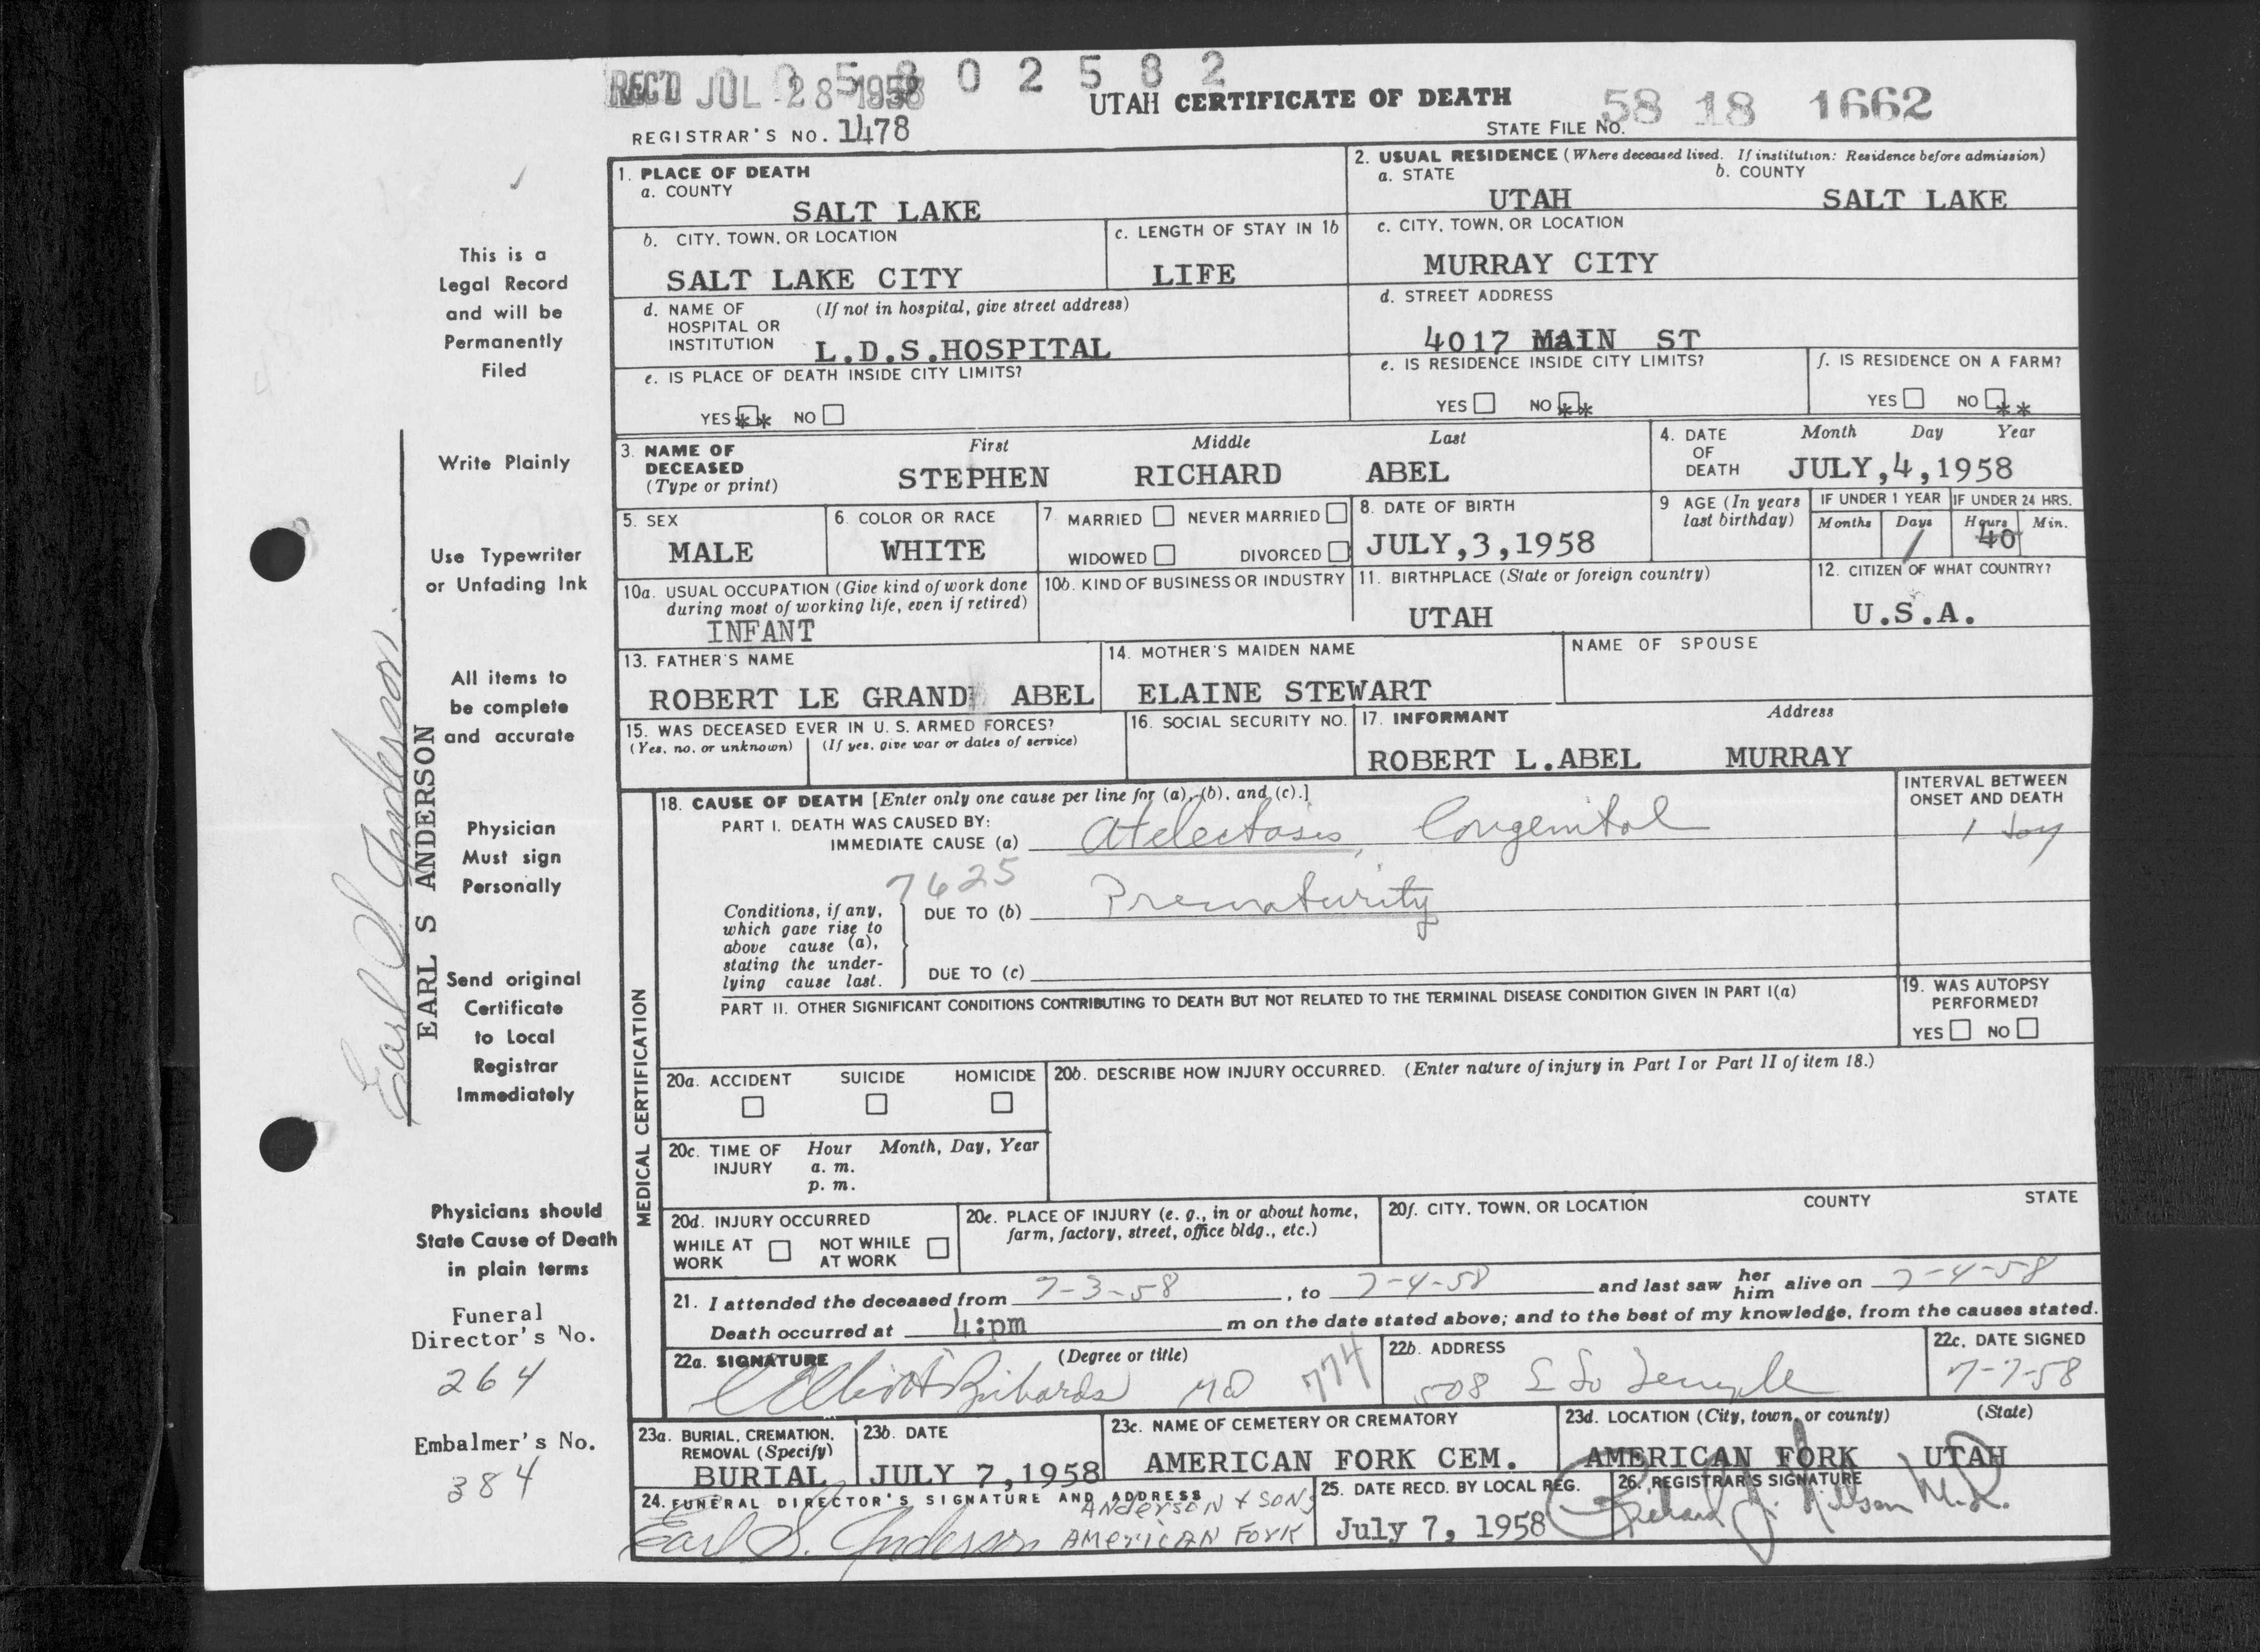 REC'D JUL 28 1958
0 2 5 8 2
UTAH CERTIFICATE OF DEATH
58 18 1662
REGISTRAR'S NO. 1478
STATE FILE NO.
1. PLACE OF DEATH
a. COUNTY
SALT LAKE
2. USUAL RESIDENCE (Where deceased lived. If institution: Residence before admission)
a. STATE
UTAH
b. COUNTY
SALT LAKE
b. CITY, TOWN, OR LOCATION
SALT LAKE CITY
c. LENGTH OF STAY IN 1b
LIFE
c. CITY, TOWN, OR LOCATION
MURRAY CITY
d. NAME OF HOSPITAL OR INSTITUTION
(If not in hospital, give street address)
L.D.S.HOSPITAL
d. STREET ADDRESS
4017 MAIN ST
e. IS PLACE OF DEATH INSIDE CITY LIMITS?
YES ** NO
e. IS RESIDENCE INSIDE CITY LIMITS?
YES NO **
f. IS RESIDENCE ON A FARM?
YES NO **
3. NAME OF DECEASED
(Type or print)
First Middle Last
STEPHEN RICHARD ABEL
4. DATE OF DEATH
Month Day Year
JULY,4,1958
5. SEX
MALE
6. COLOR OR RACE
WHITE
7. MARRIED NEVER MARRIED
WIDOWED DIVORCED
8. DATE OF BIRTH
JULY,3,1958
9 AGE (In years last birthday)
IF UNDER 1 YEAR IF UNDER 24 HRS.
Months Days Hours Min.
1 40
10a. USUAL OCCUPATION (Give kind of work done
during most of working life, even if retired)
INFANT
10b. KIND OF BUSINESS OR INDUSTRY
11. BIRTHPLACE (State or foreign country)
UTAH
12. CITIZEN OF WHAT COUNTRY?
U.S.A.
13. FATHER'S NAME
ROBERT LE GRAND ABEL
14. MOTHER'S MAIDEN NAME
ELAINE STEWART
NAME OF SPOUSE
15. WAS DECEASED EVER IN U. S. ARMED FORCES?
(Yes, no, or unknown) (If yes, give war or dates of service)
16. SOCIAL SECURITY NO.
17. INFORMANT Address
ROBERT L.ABEL MURRAY
MEDICAL CERTIFICATION
18. CAUSE OF DEATH [Enter only one cause per line for (a), (b), and (c).]
PART I. DEATH WAS CAUSED BY:
IMMEDIATE CAUSE (a) Atelectasis, Congenital
INTERVAL BETWEEN
ONSET AND DEATH
1 day
7625
Conditions, if any,
which gave rise to
above cause (a),
stating the under-
lying cause last.
DUE TO (b) Prematurity
DUE TO (c)
PART II. OTHER SIGNIFICANT CONDITIONS CONTRIBUTING TO DEATH BUT NOT RELATED TO THE TERMINAL DISEASE CONDITION GIVEN IN PART I(a)
19. WAS AUTOPSY
PERFORMED?
YES NO
20a. ACCIDENT SUICIDE HOMICIDE
20b. DESCRIBE HOW INJURY OCCURRED. (Enter nature of injury in Part I or Part II of item 18.)
20c. TIME OF INJURY
Hour Month, Day, Year
a. m.
p. m.
20d. INJURY OCCURRED
WHILE AT WORK NOT WHILE AT WORK
20e. PLACE OF INJURY (e. g., in or about home,
farm, factory, street, office bldg., etc.)
20f. CITY, TOWN, OR LOCATION COUNTY STATE
21. I attended the deceased from 7-3-58, to 7-4-58 and last saw her him alive on 7-4-58
Death occurred at 4:pm m on the date stated above; and to the best of my knowledge, from the causes stated.
22a. SIGNATURE (Degree or title)
Elliott Richards MD 774
22b. ADDRESS
508 E So Temple
22c. DATE SIGNED
7-7-58
23a. BURIAL, CREMATION,
REMOVAL (Specify)
BURIAL
23b. DATE
JULY 7,1958
23c. NAME OF CEMETERY OR CREMATORY
AMERICAN FORK CEM.
23d. LOCATION (City, town, or county) (State)
AMERICAN FORK UTAH
24. FUNERAL DIRECTOR'S SIGNATURE AND ADDRESS
Anderson & Sons
Earl S. Anderson American Fork
25. DATE RECD. BY LOCAL REG.
July 7, 1958
26. REGISTRAR'S SIGNATURE
This is a
Legal Record
and will be
Permanently
Filed
Write Plainly
Use Typewriter
or Unfading Ink
All items to
be complete
and accurate
Physician
Must sign
Personally
Send original
Certificate
to Local
Registrar
Immediately
Physicians should
State Cause of Death
in plain terms
Funeral
Director's No.
264
Embalmer's No.
384
Earl S. Anderson
EARL S ANDERSON